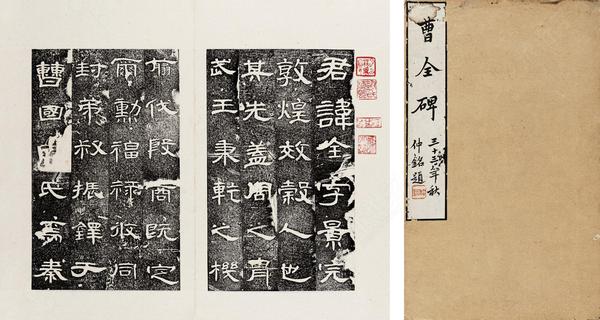 君諱全字景完
敦煌效穀人也
其先蓋周之胄
武王秉乾之機
翦伐殷商既定
爾勳福祿攸同
封弟叔振鐸于
曹國因氏焉秦
曹全碑
三十年秋
仲銘題